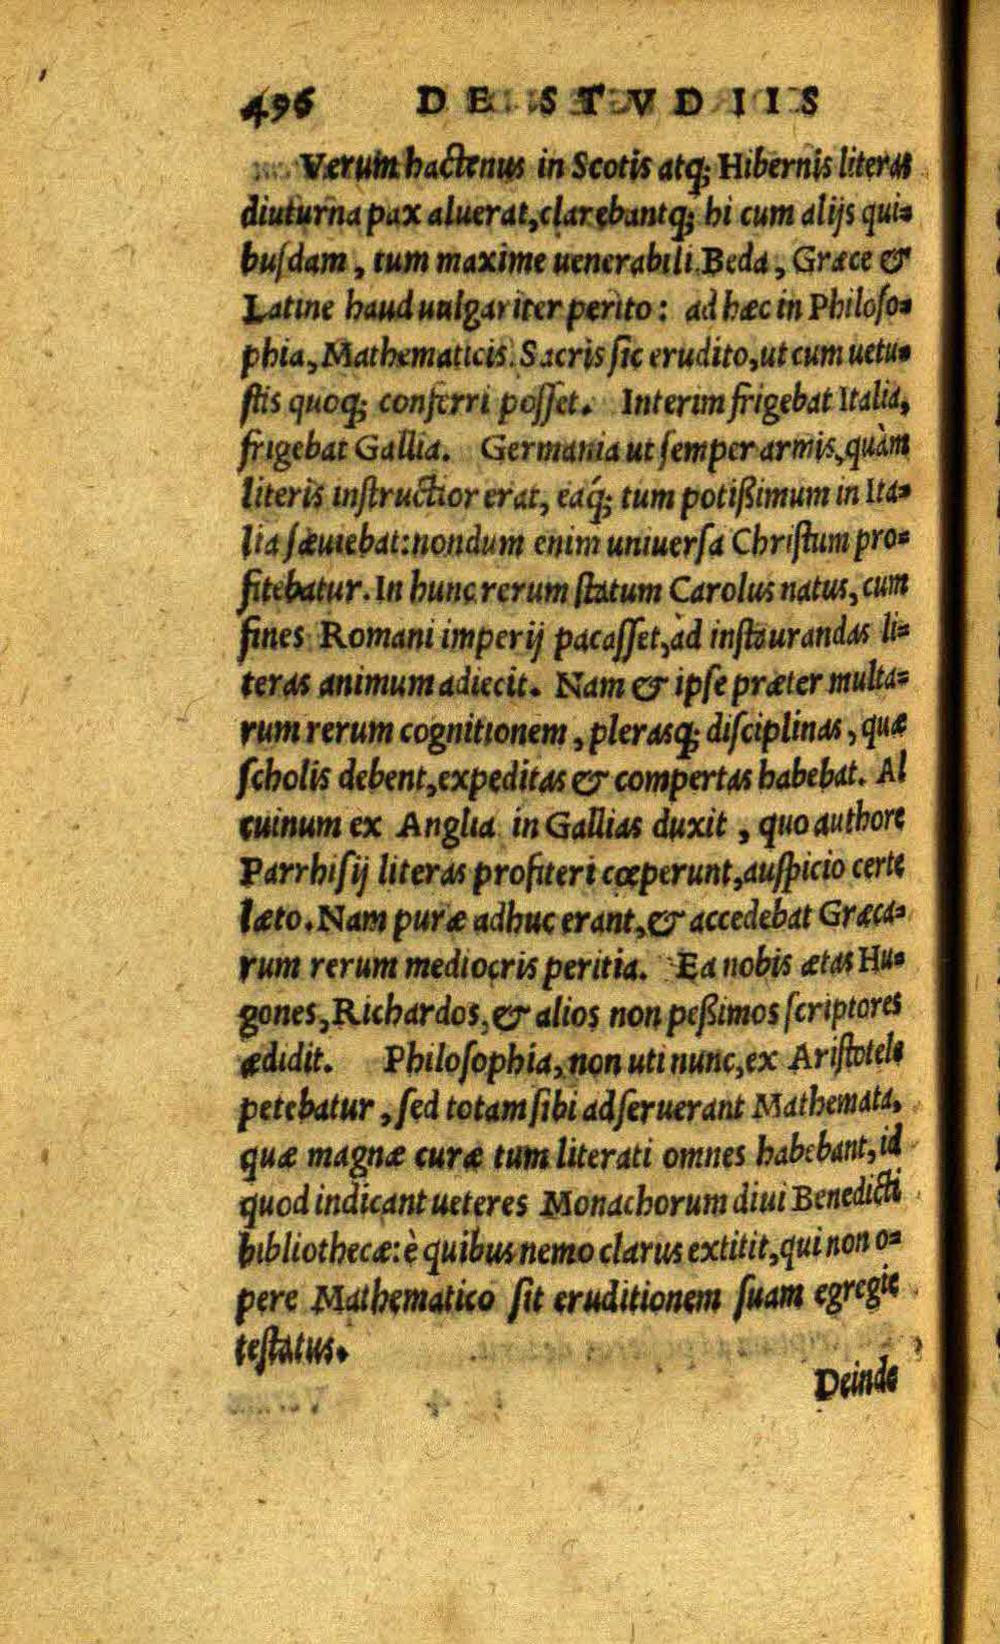 496 DE STVDIIS
Verum hactenus in Scotis atq; Hibernis literas
diuturna pax aluerat, clarebantq; hi cum alijs qui=
buſdam, tum maxime uenerabili Beda, Græce &
Latine haud uulgariter perito: ad hæc in Philoſo=
phia, Mathematicis. Sacris ſic erudito, ut cum uetu=
ſtis quoq; conferri poſſet. Interim frigebat Italia,
frigebat Gallia. Germania ut ſemper armis, quàm
literis inſtructior erat, eaq́; tum potißimum in Ita=
lia ſæuiebat: nondum enim uniuerſa Chriſtum pro=
fitebatur. In hunc rerum ſtatum Carolus natus, cum
fines Romani imperij pacaſſet, ad inſtaurandas li=
teras animum adiecit. Nam & ipſe præter multa=
rum rerum cognitionem, plerasq; diſciplinas, quæ
ſcholis debent, expeditas & compertas habebat. Al
cuinum ex Anglia in Gallias duxit, quo authore
Parrhiſij literas profiteri cœperunt, auſpicio certe
læto. Nam puræ adhuc erant, & accedebat Græca=
rum rerum mediocris peritia. Ea nobis ætas Hu=
gones, Richardos, & alios non peßimos ſcriptores
ædidit. Philoſophia, non uti nunc, ex Ariſtotele
petebatur, ſed totam ſibi adſeruerant Mathemata,
quæ magnæ curæ tum literati omnes habebant, id
quod indicant ueteres Monachorum diui Benedicti
bibliothecæ: è quibus nemo clarus extitit, qui non o=
pere Mathematico ſit eruditionem ſuam egregie
teſtatus.
Deinde